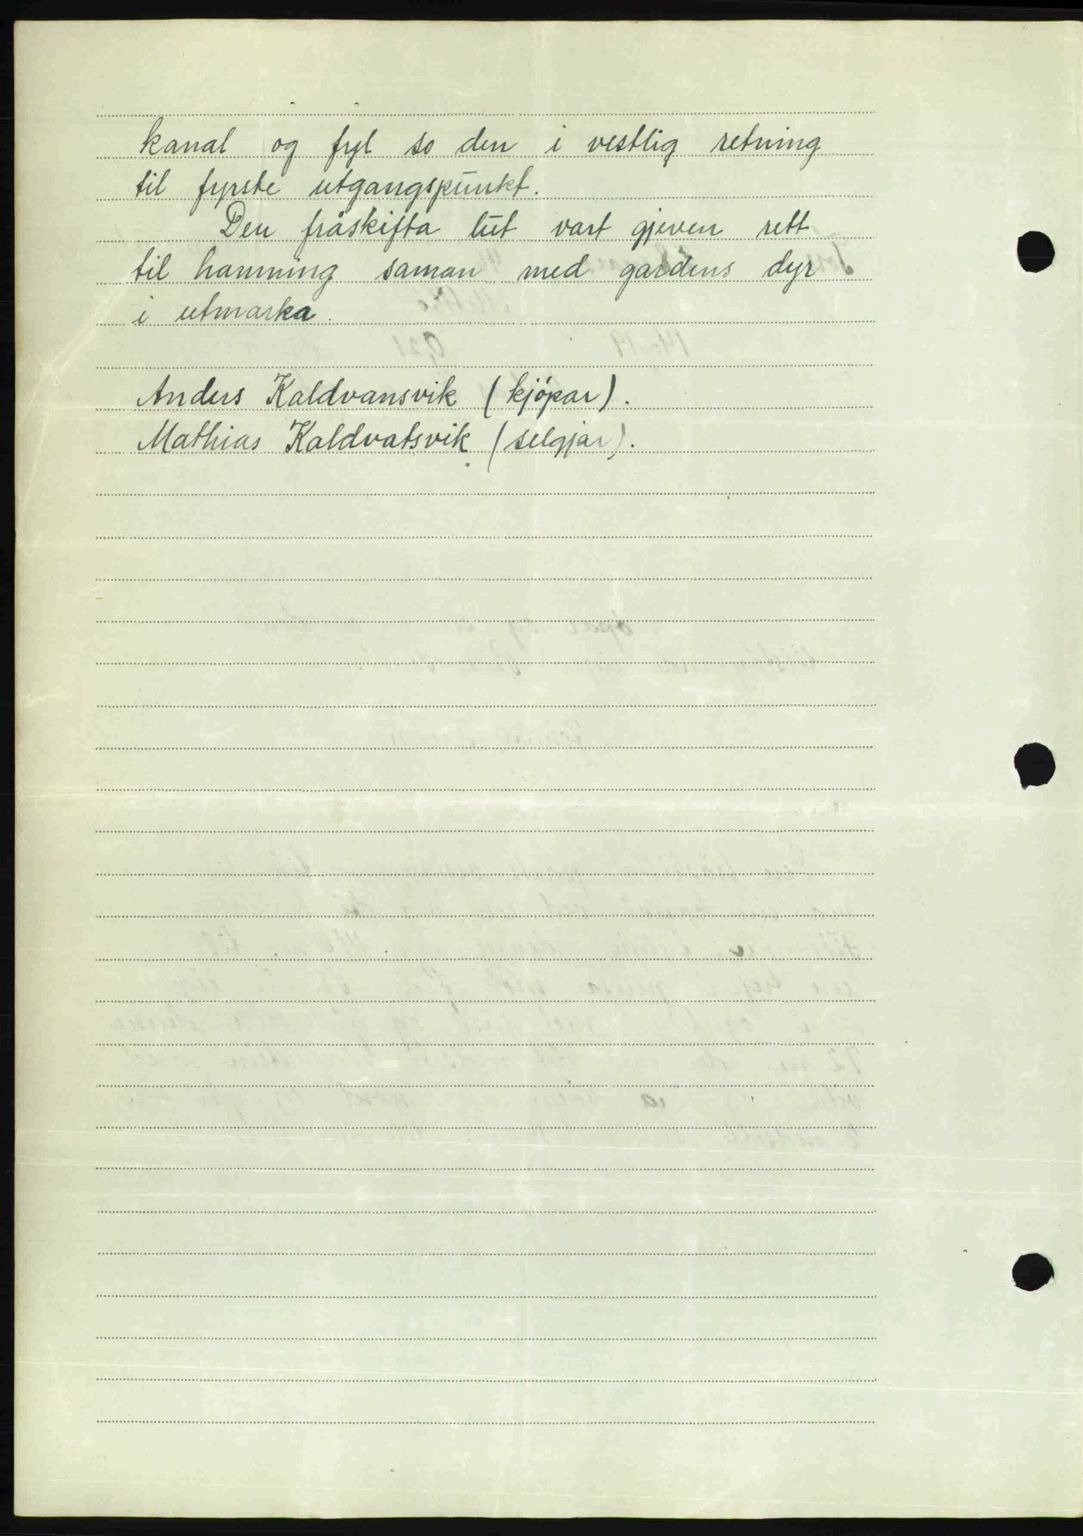 kanal og fyl so den i vestlig retning
til fyrste utgangspunkt.
Den fråskifta lut vart gjeven rett
til hamning saman med gardens dyr
i utmarka.
Anders Kaldvansvik (kjøpar).
Mathias Kaldvatsvik (selgjar).